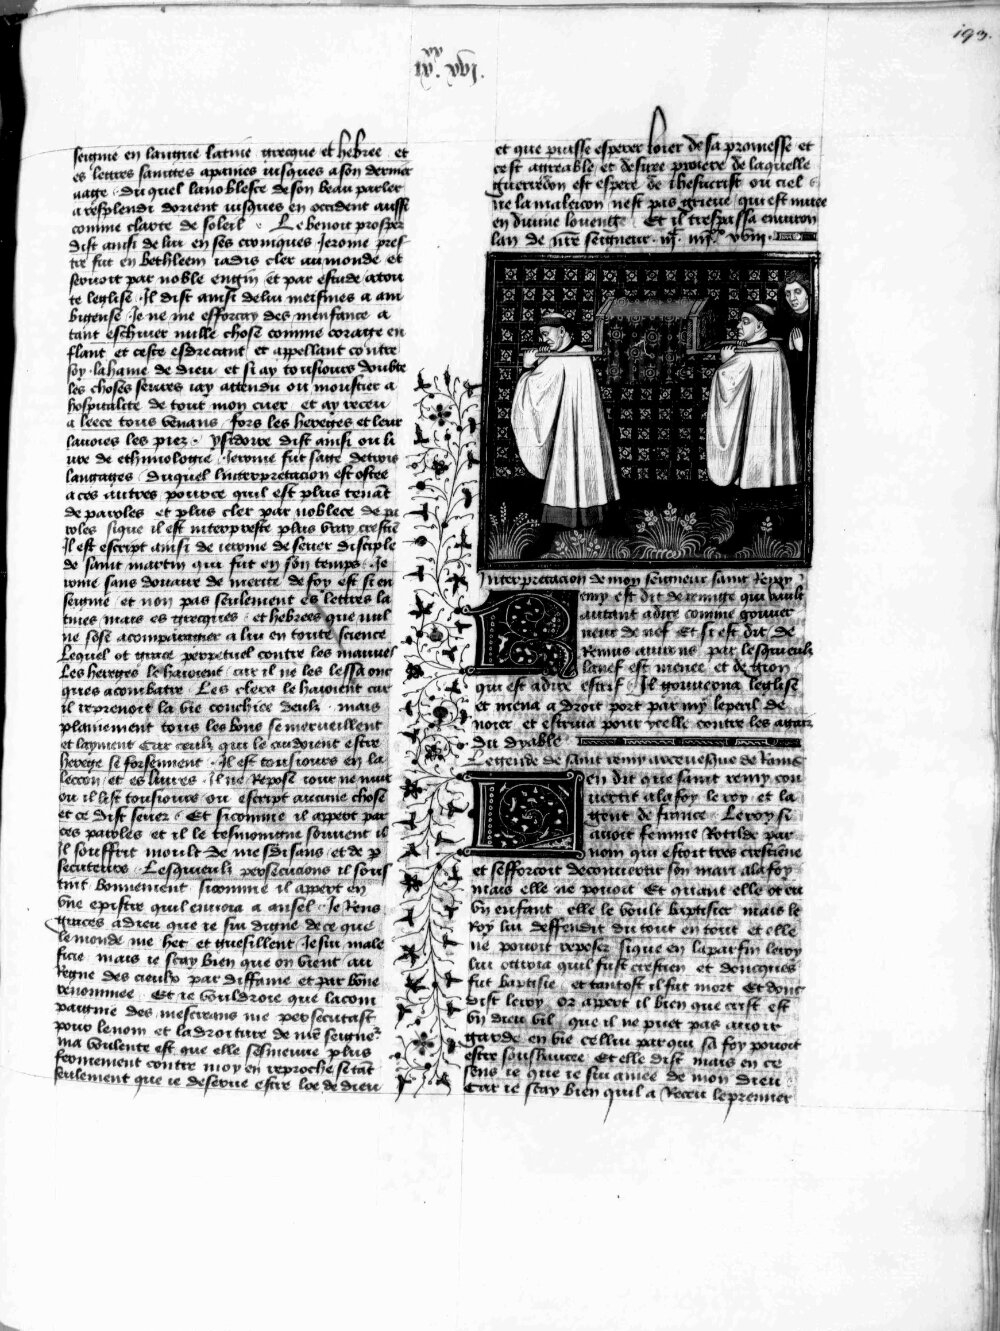 193.
xx
iv. xvi.
seigne en langue latine grecque et hebree et
es lettres sainctes apaines iusques a son dernier
aage. duquel la noblesce de son beau parler
a resplendi dorient iusques en occident aussi
comme clarte de soleil. Le benoit prosper
dist ainsi de lui en ses croniques Jerome pres
tre fut en bethleem iadis cler au monde et
seruoit par noble engin et par estude a tou
te leglise. Il dist ainsi de lui meismes a am
bigense. Je ne me efforcay des menfance a
tant eschiuer nulle chose comme corage en
flant et ceste esdrecant et appellant contre
soy la haine de dieu et si ay tousiours doubte
les choses seures iay attendu ou moustier a
hospitalite de tout mon cuer et ay receu
a leece tous venans fors les hereges et leur
lauoies les piez. ysidorre dist ainsi ou li
ure de ethimologie. Jerome fut sage de trois
langages duquel linterpretacion est ostee
a ces autres pource quil est plus tenāt
de paroles et plus cler par noblece de pa
roles sique il est interpreste plus vray crestiē
Il est escript ainsi de ierome de seuer disciple
de saint martin qui fut en son temps. Je
rome sans douaire de merite de foy est si en
seigne et non pas seulement es lettres la
tines mais es grecques et hebrees que nul
ne sose acompaigner a lui en toute science
Lequel ot grace perpetuel contre les mauues
Les hereges le haioient car il ne les lessa onc
ques a combatre. Les clers le haioient car
il reprenoit la vie conchiee deulx. mais
plainement tous les bons se merueillent
et layment Car ceulx qui le cuidoient estre
herege si forsennent. Il est tousiours en la
lecon et es liures. Il ne repose iour ne nuit
ou il list tousiours ou escript aucune chose
et ce dist seuer. Et sicomme il appert par
ces paroles et il le tesmoigne souuent il
Il souffrit moult de mesdisans et de p
secuteurs. Lesquelx persecucions il sous
tint bonnement sicomme il appert en
vne epistre quil enuoia a ansel. Je rens
graces a dieu que ie sui digne de ce que
le monde me het et guesillent Je sui male
fice mais ie scay bien que on vient au
regne des cieulx par diffame et par bone
renommee. Et ie vouldroie que la com
paignie des mescreans me persecutast
pour le nom et la droiture de nr̄e seigneur
ma voulente est que elle sesmeuue plus
fermement contre moy en reproche se tāt
seulement que ie deserue estre loe de dieu
et que puisse esperer loier de sa promesse et
cest agreable et desiree proiere de laquelle
guerredon est espere de ihesucrist ou ciel
ne la maleicon nest pas grieue qui est muee
en diuine louenge. Et il trespassa enuiron
lan de nr̄e seigneur
Interpretacion de mon seigneur saint Remy
Remy est dit de remige qui vault
autant a dire comme gouuer
neur de nef Et si est dit de
Remus auirons par lesquelx
la nef est menee et de gion
qui est a dire estrif. Il gouuerna leglise
et mena a droit port par my le peril de
noier et estriua pour ycelle contre les aguez
du dyable
Legende de saint remy arceuesque de Rains
en dit que saint remy con
uertit a la foy le roy et la
gent de france. Le roy si
auoit femme Rotilde par
nom qui estoit tres crestiēne
et sefforcoit de conuertir son mari a la foy
mais elle ne pouoit Et quant elle ot eu
vn enfant elle le voult baptisier mais le
Roy lui deffendit du tout en tout et elle
ne pouoit reposer sique en la parfin le roy
lui otroia quil fust crestien et doncques
fut baptisie et tantost il fut mort Et donc
dist le roy or appert il bien que crist est
vn dieu vil que il ne puet pas auoir
garde en vie cellui par qui sa foy pouoit
estre soushaucee Et elle dist mais en ce
sens ie que ie sui amee de mon dieu
Car ie scay bien quil a receu le premier